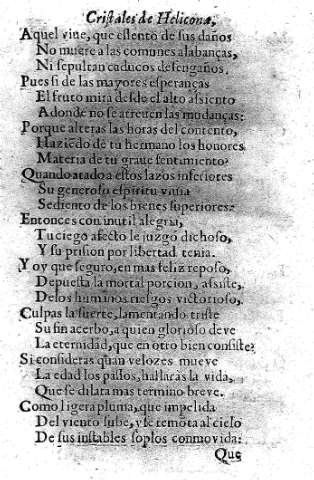 Cristales de Helicona,
Aquel vine, que essento de sus daños
No muere a las comunes alabanças,
Ni sepultan caducos desengaños.
Pues si de las mayores esperanças
El fruto mira desde el alto assiento
Adonde no se atreuen las mudanças:
Porque alteras las horas del contento,
Haziẽdo de tu hermano los honores
Materia de tu graue sentimiento?
Quando atado a estos lazos inferiores
Su generoso espiritu viuia
Sediento de los bienes superiores?
Entonces con inutil alegria,
Tu ciego afecto le juzgò dichoso,
Y su prision por libertad tenia.
Y oy que seguro, en mas feliz reposo,
Depuesta la mortal porcion, assiste,
De los humanos riesgos victorioso,
Culpas la suerte, lamentando triste
Su fin acerbo, a quien glorioso deve
La eternidad, que en otro bien consiste?
Si consideras quan velozes mueve
La edad los passos, hallaràs la vida,
Que se dilata mas termino breve.
Como ligera pluma, que impelida
Del viento sube, y se remota al cielo
De sus instables soplos conmovida:
Que